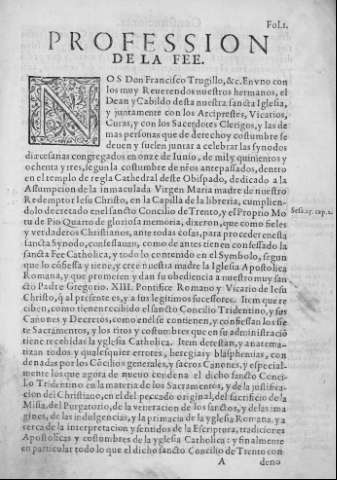 Fol.1.
PROFESSION
DE LA FEE.
NOS Don Francisco Trugillo, &c. En vno con
los muy Reuerendos nuestros hermanos, el
Dean y Cabildo desta nuestra sancta Iglesia,
y juntamente con los Arciprestes, Vicarios,
Curas, y con los Sacerdotes Clerigos, y las de
mas personas que de derecho y costumbre se
deuen y suelen juntar a celebrar las synodos
diœcesanas congregados en onze de Iunio, de mil y quinientos y
ochenta y tres, segun la costumbre de nr̃os antepassados, dentro
en el templo de regla Cathedral deste Obispado, dedicado a la
Assumpcion de la inmaculada Virgen Maria madre de nuestro
Redemptor Iesu Christo, en la Capilla de la libreria, cumplien-
do lo decretado en el sancto Concilio de Trento, y es Proprio Mo
tu de Pio Quarto de gloriosa memoria, dixeron, que como fieles
y verdaderos Christianos, ante todas cosas, para proceder en esta
sancta Synodo, confessauan, como de antes tienen confessado la
sancta Fee Catholica, y todo lo contenido en el Symbolo, segun
que lo cõfiessa y tiene, y cree nuestra madre la Iglesia Apostolica
Romana, y que prometen y dan su obediencia a nuestro muy san
cto Padre Gregorio. XIII. Pontifice Romano y Vicario de Iesu
Christo, q̃ al presente es, y a sus legitimos sucessores. Item que re
ciben, como tienen recebido el sancto Concilio Tridentino, y sus
Canones y Decretos, como en el se contienen, y confiessan los sie
te Sacramentos, y los ritos y costumbres que en su administraciõ
tiene recebidas la yglesia Catholica. Item detestan, y anatema-
tizan todos y qualesquier errores, heregias y blasphemias, con
denadas por los Cõcilios generales, y sacros Canones, y especial-
mente los que agora de nueuo condena el dicho sancto Conci-
lio Tridentino en la materia de los Sacramentos, y de la justifica-
cion del Christiano, en el del peccado original, del sacrificio de la
Missa, del Purgatorio, de la veneracion de los sanctos, y de las ima
gines, de las indulgencias, y la primacia de la yglesia Romana. y a
cerca de la interpretacion y sentidos de la Escriptura, tradiciones
Apostolicas y costumbres de la yglesia Catholica: y finalmente
en particular todo lo que el dicho sancto Concilio de Trento con
A deno
Sess.25. cap.2.